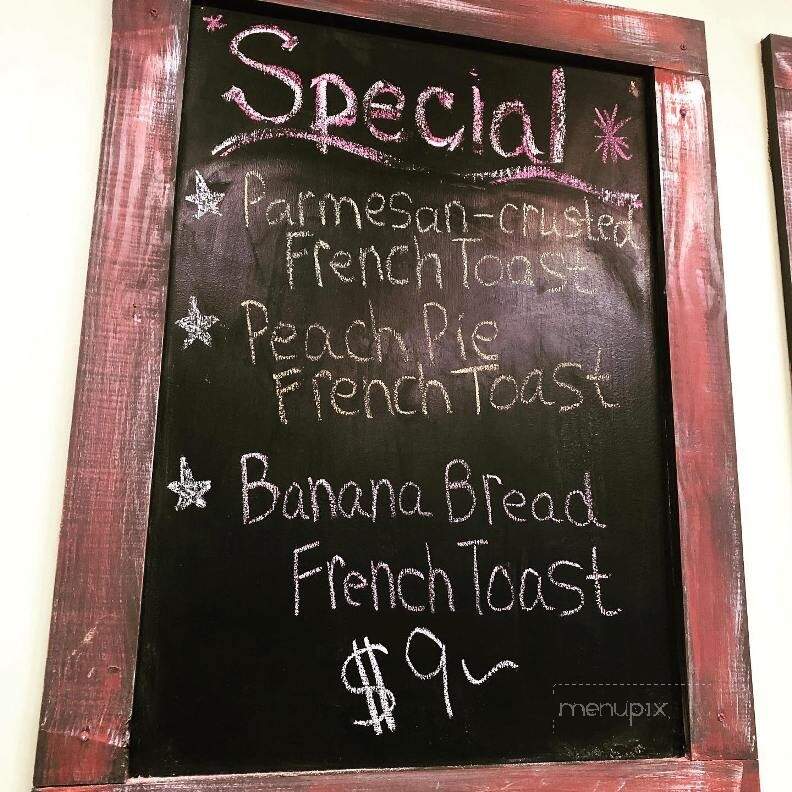 Special
Parmesan-crusted
French Toast
Peach Pie
French Toast
Banana Bread
French Toast
$9~
menupix